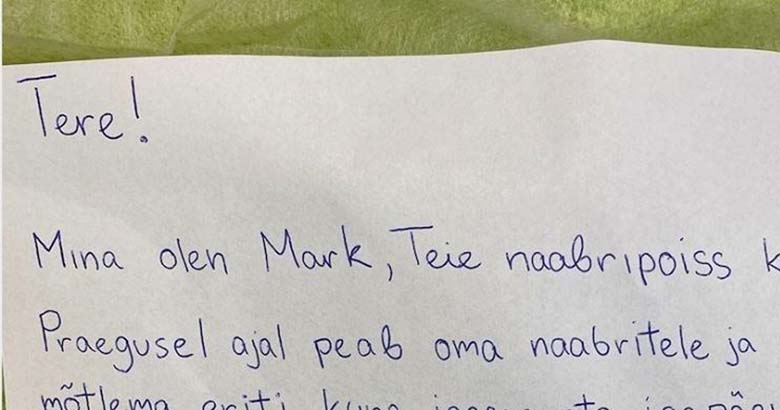 Tere!
Mina olen Mark, Teie naabripoiss k
Praegusel ajal peab oma naabritele ja
mõtlema eriti kuna